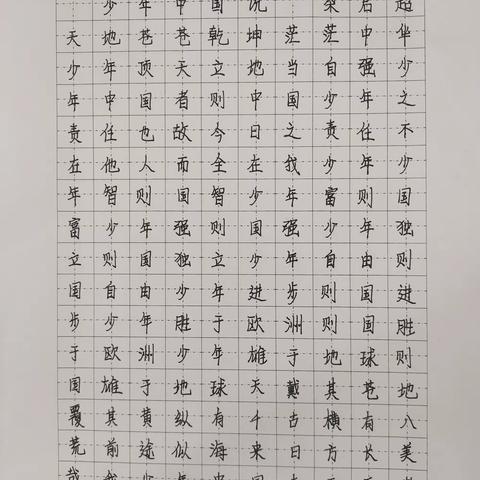 少年中国说 梁启超
天地苍苍乾坤茫茫中华
少年顶天立地当自强少
年中国者则中国少年之
责任也故今日之责任不
在他人而全在我少年少
年智则国智少年富则国
富少年强则国强少年独
立则国独立少年自由则
国自由少年进步则国进
步少年胜于欧洲则国胜
于欧洲少年雄于地球则
国雄于地球天戴其苍地
覆其黄纵有千古横有八
荒前途似海来日方长美
哉我少年中国